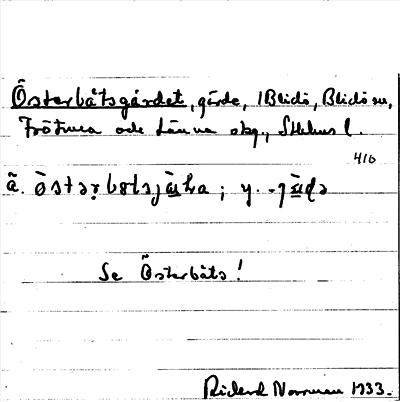 Österbåtsgärdet, gärde, 1 Blidö, Blidö sn,
Frötuna och Länna skg., Sthlms l.
416
Se Österbåts!
Rickard Norrman 1933.